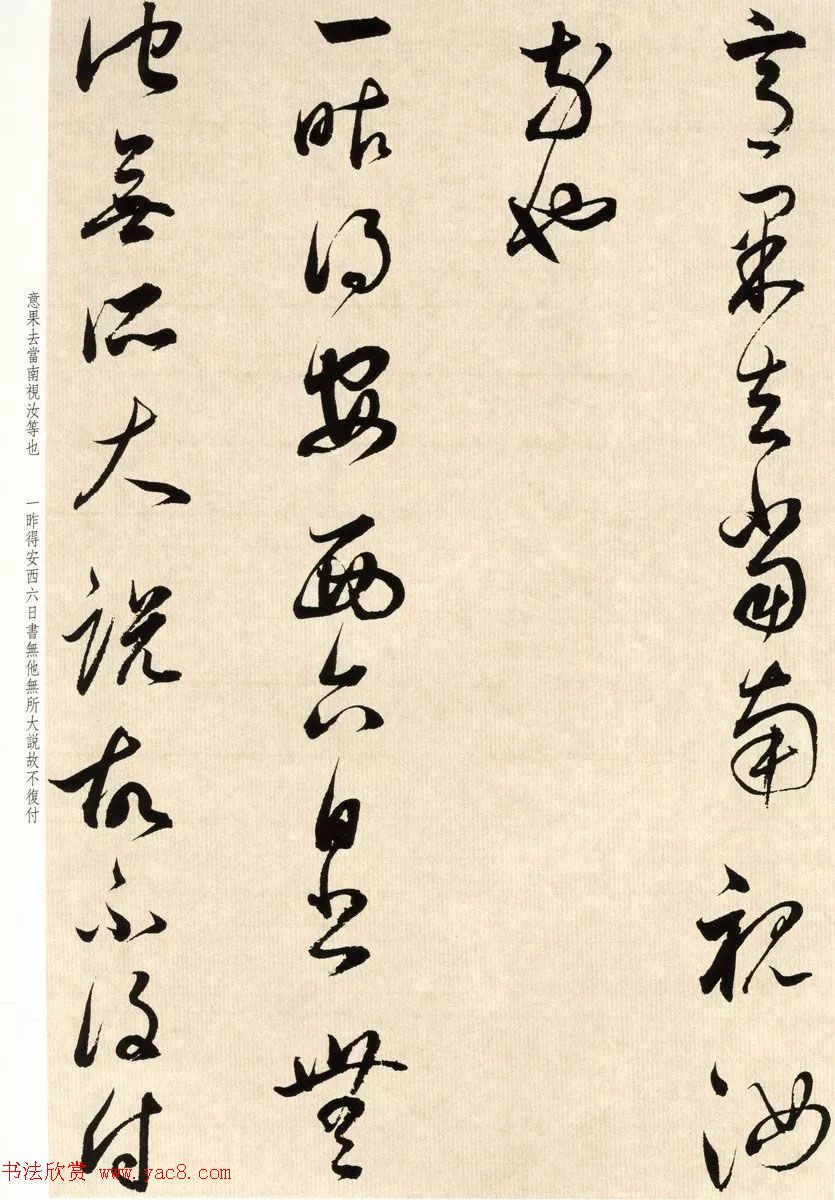 意果去當南視汝
等也
一昨得安西六日書無
他無所大説故不復付
意果去當南視汝等也　一昨得安西六日書無他無所大説故不復付
书法欣赏 www.yac8.com